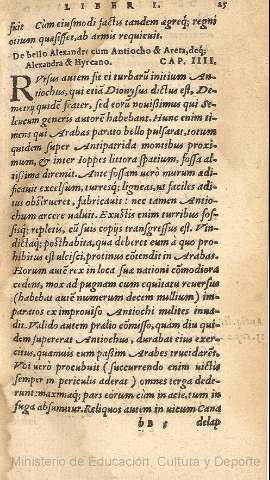 LIBER I. 25
fuit Cum eiusmodi factus tandem agreq; regni
otium quasisset, ab armis requieuit.
De bello Alexandri cum Antiocho & Areta, deq;
Alexandra & Hyrcano. CAP. IIII.
RVrsus autem fit ei turbarū initium An-
tiochus, qui etiā Dionysus dictus est, De-
metrij quidē frater, sed eorū nouissimus qui Se-
leucum generis autorē habebant. Hunc enim ti-
mens qui Arabas parato bello pulsarat, totum
quidem super Antipatrida montibus proxi-
mum, & inter Ioppes littora spatium, fossa al-
tissima diremit. Ante fossam uerò murum ædi-
ficauit excelsum, turresq; ligneas, ut faciles adi-
tus obstrueret, fabricauit: nec tamen Antio-
chum arcere ualuit. Exustis enim turribus fos-
sisq; repletis, cū suis copijs transgressus est. Vin-
dictaq; posthabita, qua deberet eum à quo pro-
hibitus est ulcisci, protinus cōtendit in Arabas.
Eorum autē rex in loca suæ nationi cōmodiora
cedens, mox ad pugnam cum equitatu reuersus
(habebat autē numerum decem millium) im-
paratos ex improuiso Antiochi milites inua-
dit. Valido autem prælio cōmisso, quàm diu qui-
dem supererat Antiochus, durabat eius exer-
citus, quamuis eum passim Arabes trucidarēt.
Vbi uerò procubuit (succurrendo enim uictis
semper in periculis aderat) omnes terga dede-
runt: maximaq; pars eorum cùm in acie, tum in
fuga absumitur. Reliquos autem in uicum Cana
bB 5 delap
Ministerio de Educación, Cultura y Deporte